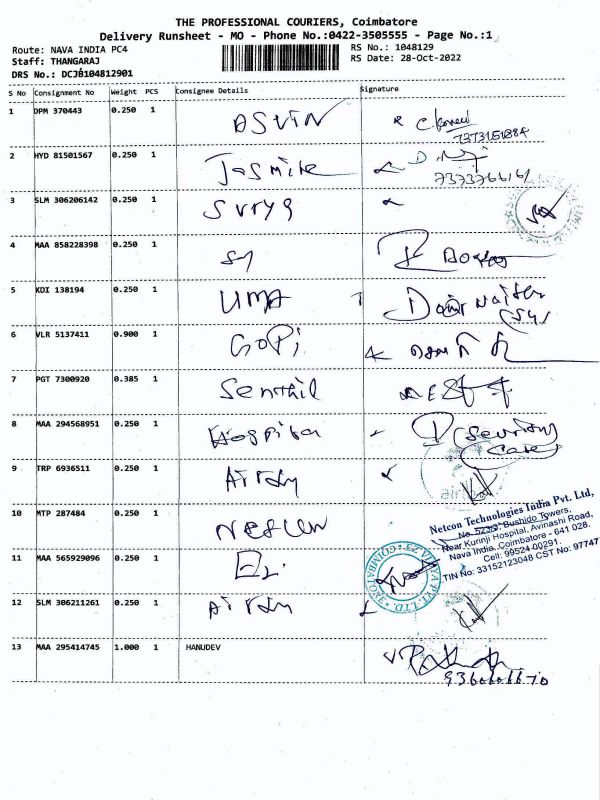 THE PROFESSIONAL COURIERS, Coimbatore
Delivery Runsheet - MO - Phone No.:0422-3505555 - Page No.:1
Route: NAVA INDIA PC4
RS No.: 1048129
Staff: THANGARAJ
RS Date: 28-Oct-2022
DRS No.: DCJB104812901
S No Consignment No Weight PCS Consignee Details Signature
1 DPM 370443 0.250 1 ASVIN
7373151884
2 HYD 81501567 0.250 1 Jasmine
3 SLM 306206142 0.250 1 Surya
4 MAA 858228398 0.250 1
5 KDI 138194 0.250 1 UMA
6 VLR 5137411 0.900 1 GoPi
7 PGT 7300920 0.385 1 Senthil
8 MAA 294568951 0.250 1 Hospital
9 TRP 6936511 0.250 1
10 MTP 287484 0.250 1
Netcon Technologies India Pvt. Ltd,
No. 523/3, Bushido Towers,
Near Kurinji Hospital, Avinashi Road,
Nava India, Coimbatore - 641 028.
Cell: 99524 00291.
TIN No: 33152123048 CST No: 97747
11 MAA 565929096 0.250 1
12 SLM 306211261 0.250 1
13 MAA 295414745 1.000 1 HANUDEV